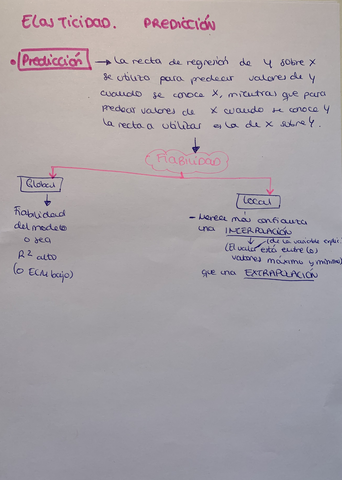 ELASTICIDAD. PREDICCIÓN
• Predicción → La recta de regresión de Y sobre X
se utiliza para predecir valores de Y
cuando se conoce X, mientras que para
predecir valores de X cuando se conoce Y
la recta a utilizar es la de X sobre Y.
FIABILIDAD
Global
Fiabilidad
del modelo
o sea
R² alto
(o ECM bajo)
Local
- Merece más confianza
una INTERPOLACIÓN
(de la variable explic.
(El valor está entre los
valores máximo y mínimo)
que una EXTRAPOLACIÓN